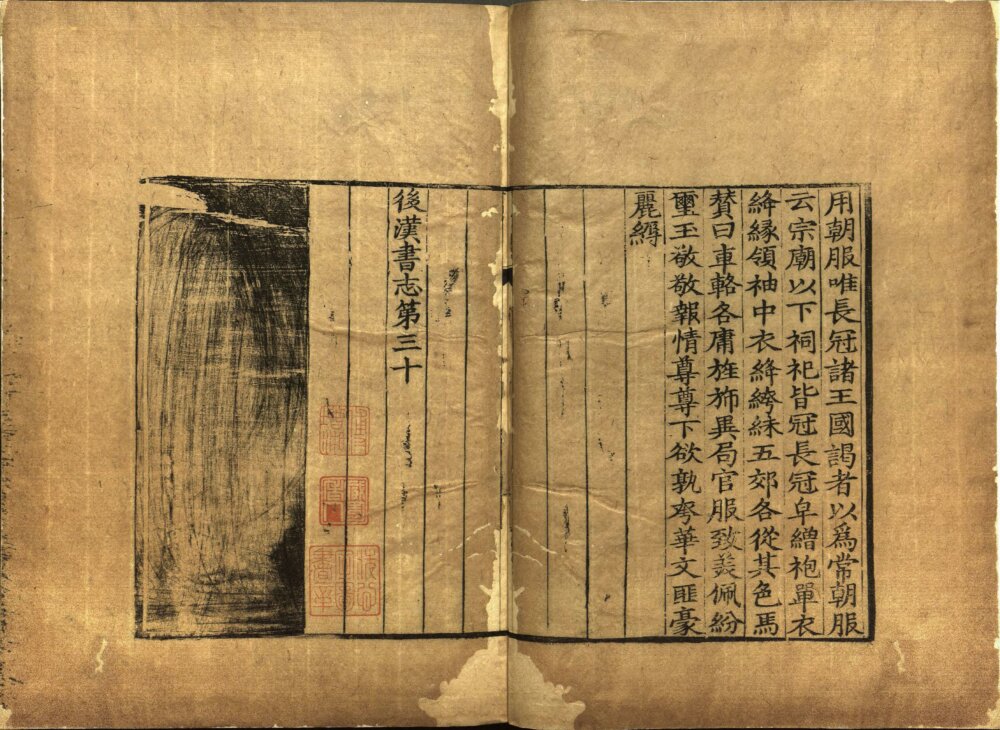 用朝服唯長冠諸王國謁者以爲常朝服
云宗廟以下祠祀皆冠長冠皁繒袍單衣
絳緣領袖中衣絳絝絑五郊各從其色焉
贊曰車輅各庸旌旂異局官服致美佩紛
璽玉敬敬報情尊尊下欲孰夸華文匪豪
麗縟
後漢書志第三十